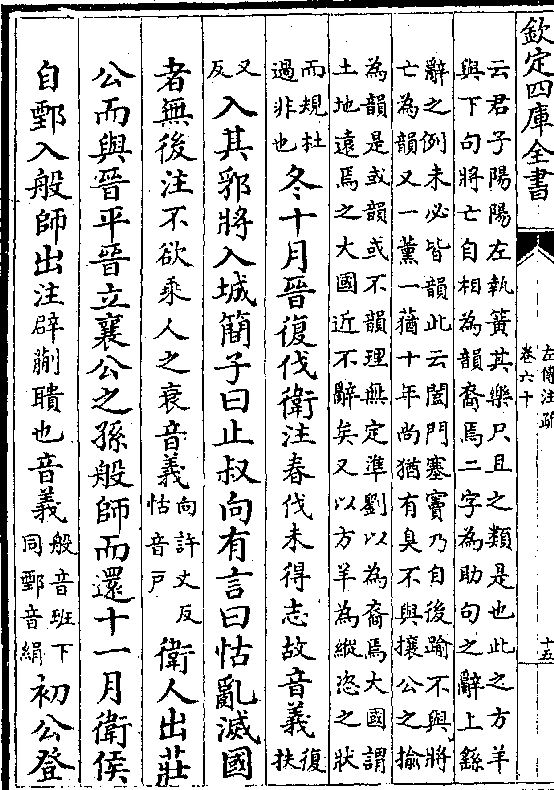 欽定四庫全書
左傳注疏
卷六十
十五
云君子陽陽左執簧其樂只且之類是也此之方羊
與下句將亡自相為韻裔焉二字為助句之辭上繇
辭之例未必皆韻此云闔門塞竇乃自後踰不與將
亡為韻又一薰一蕕十年尚猶有臭不與攘公之揄
為韻是或韻或不韻理無定準劉以為裔焉大國謂
土地遠焉之大國近不辭矣又以方羊為縱恣之狀
而規杜
過非也
冬十月晉復伐衛注春伐未得志故音義
復
扶
又
反
入其郛將入城簡子曰止叔向有言曰怙亂滅國
者無後注不欲乘人之衰音義
向許丈反
怙音戶
衛人出莊
公而與晉平晉立襄公之孫般師而還十一月衛侯
自鄄入般師出注辟蒯聵也音義
般音班下
同鄄音絹
初公登